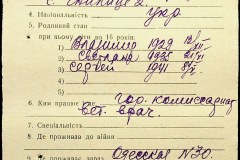 4. Національність укр
5. Родинний стан
6. При ньому діти до 16 років:
1) Владимир 1929
2) Светлана 1935
3) Сергей 1941
4)
5)
6. Ким працює гор. комиссариат
вет. врач.
7. Спеціяльність
8. Де проживав до війни
проживає зараз Одесская N 70.